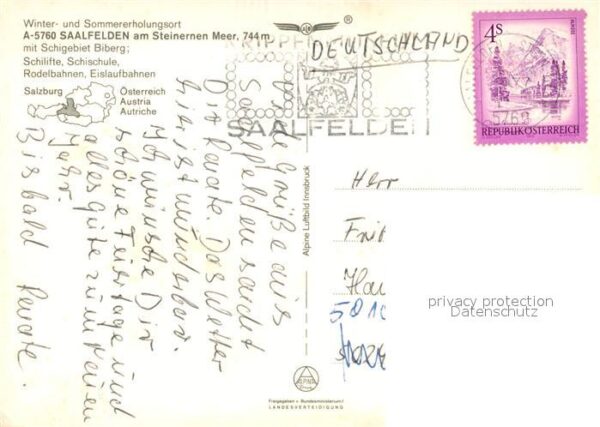 Winter- und Sommererholungsort
A-5760 SAALFELDEN am Steinernen Meer, 744 m
mit Schigebiet Biberg;
Schilifte, Schischule,
Rodelbahnen, Eislaufbahnen
Salzburg
Österreich
Austria
Autriche
®
KRIPPE
SAALFELDEN
5760
DEUTSCHLAND
4s
REPUBLIK ÖSTERREICH
Viele Grüße aus
Saalfelden sendet
Dir Renate. Das Wetter
hier ist wunderbar.
Ich wünsche Dir
schöne Feiertage und
alles gute zum neuen
Jahr.
Bis bald Renate.
Alpine Luftbild Innsbruck
Herr
Frit
Hau
5010
ALPINE
Freigegeben v. Bundesministerium f.
LANDESVERTEIDIGUNG
privacy protection
Datenschutz